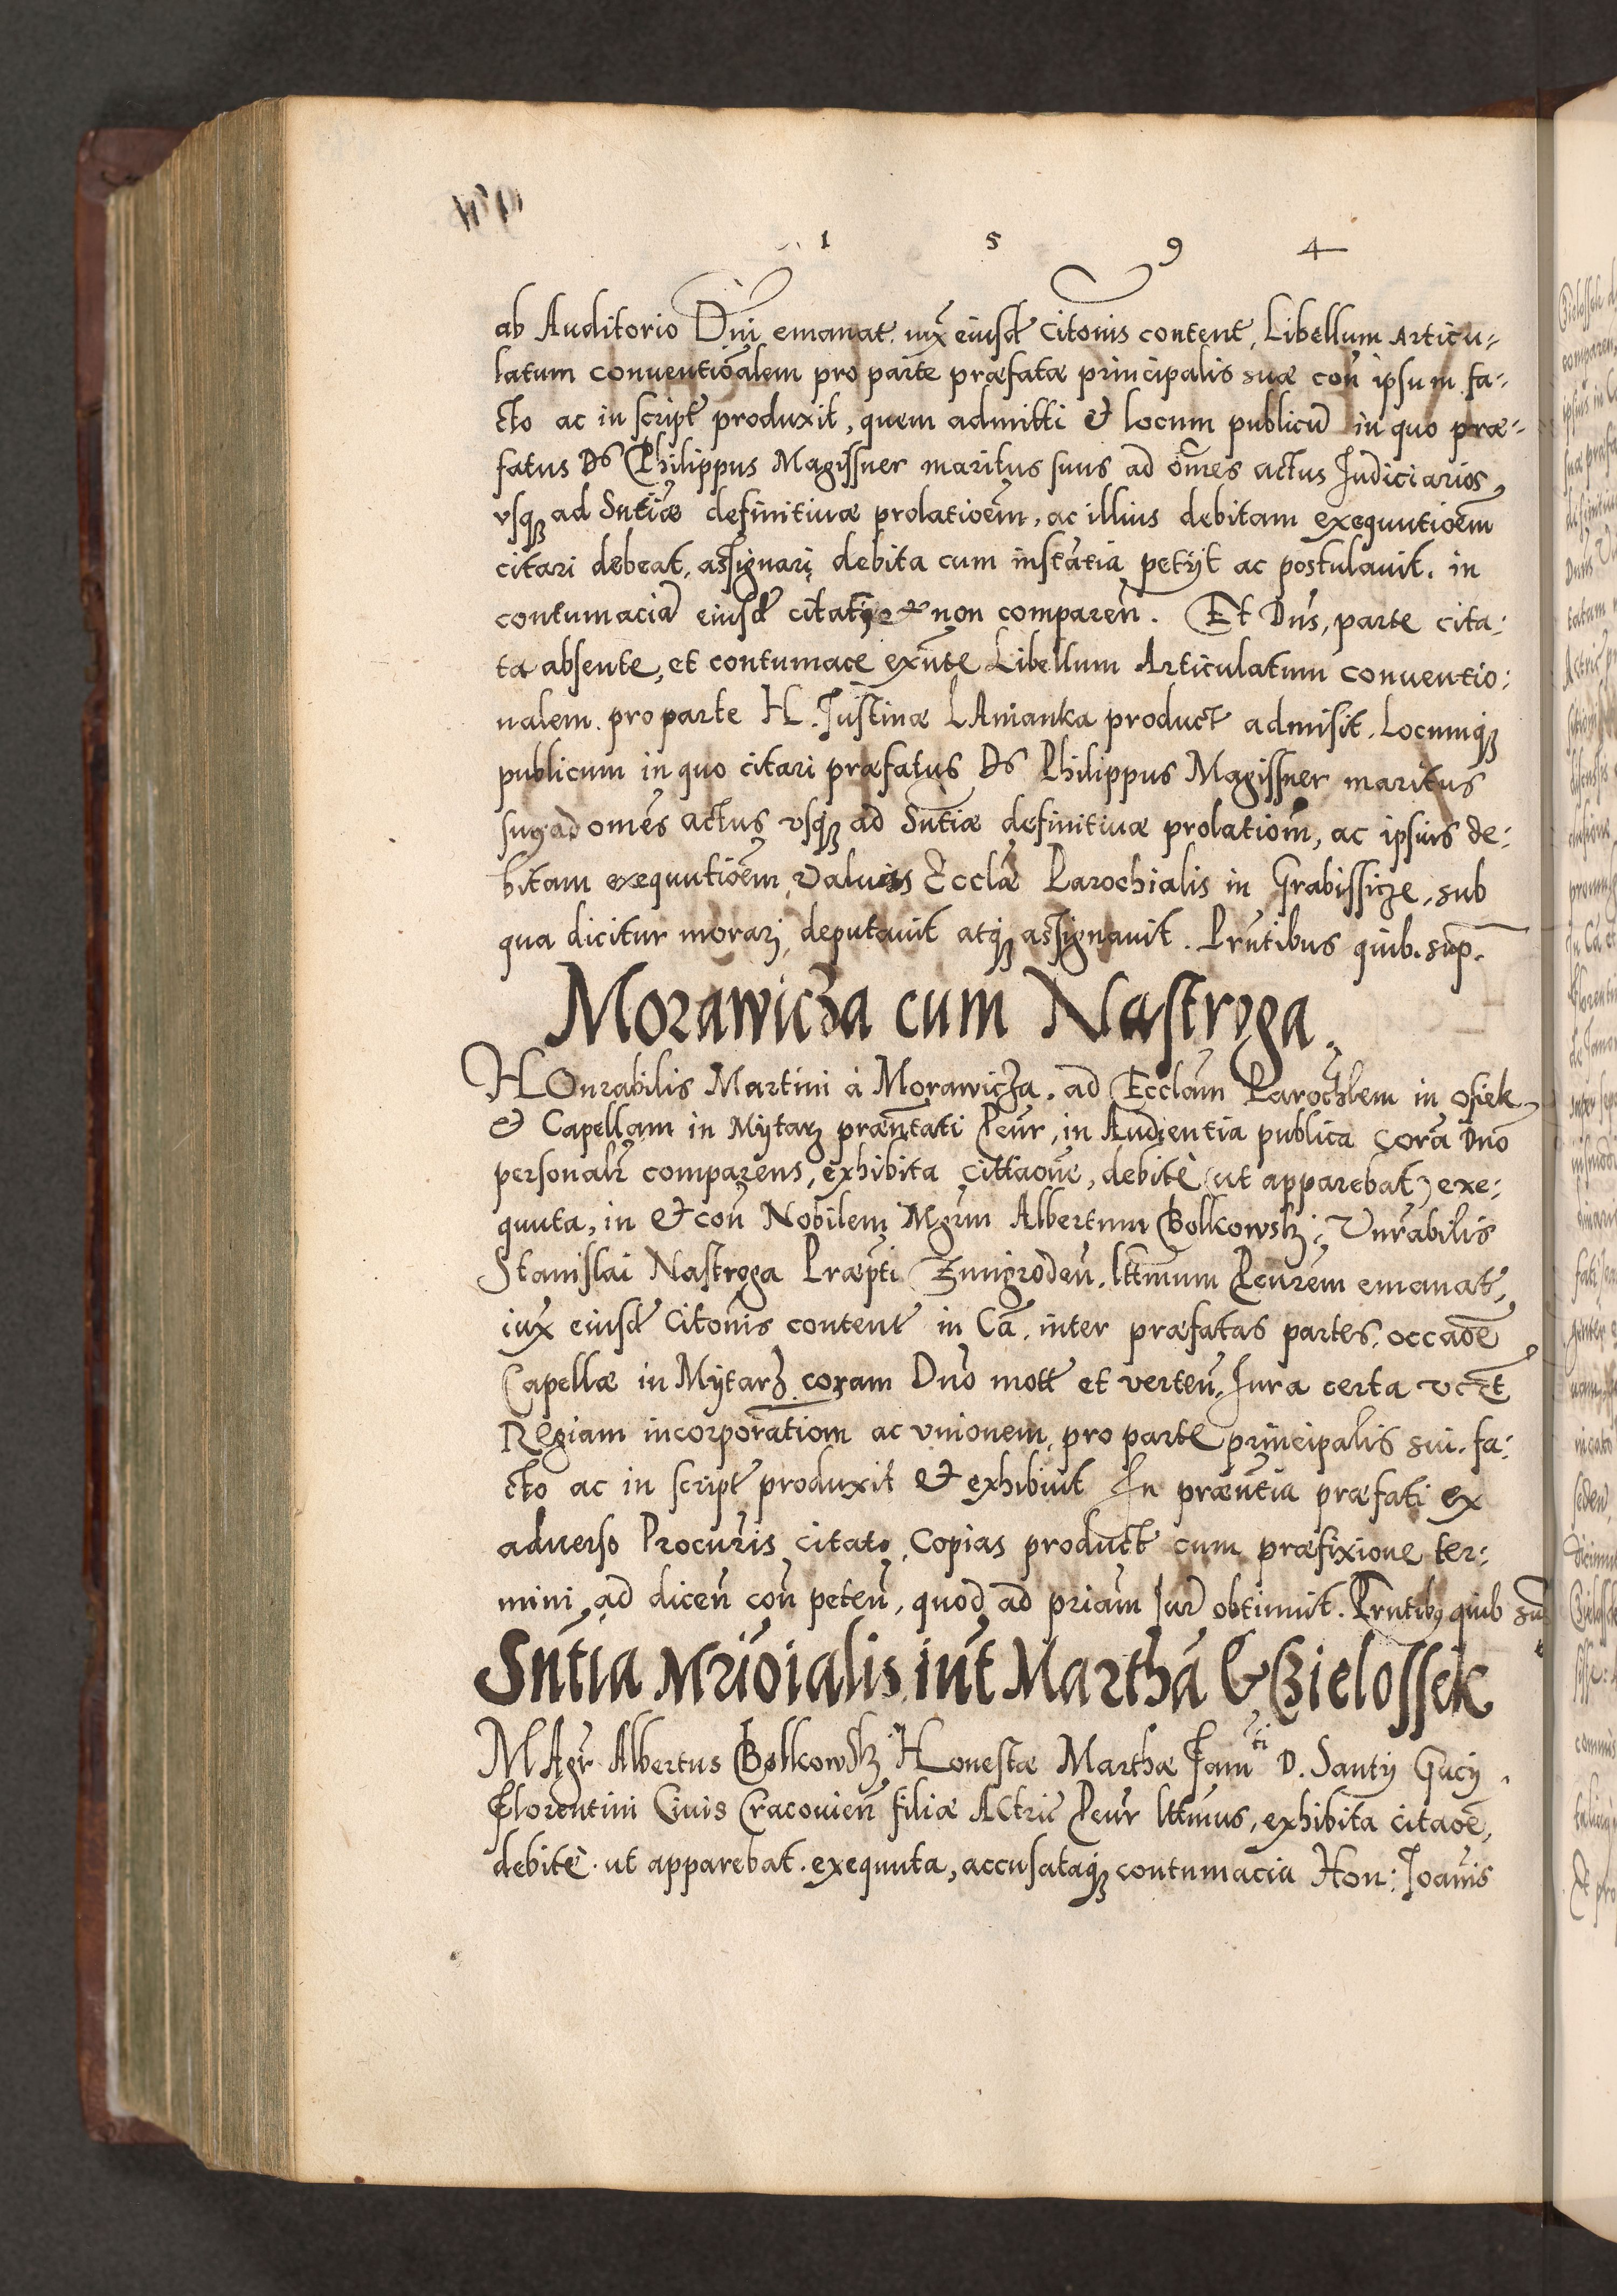 1 5 9 4
ab Auditorio Dni emanat. iux eiusd Citonis content, Libellum Articu-
latum conuentioalem pro parte præfatæ principalis suæ con ipsum fa-
cto ac in script produxit, quem admitti & locum publicu in quo præ-
fatus Ds Philippus Magissner maritus suus ad omes actus Judiciarios,
vsq ad Sntiæ definitiuæ prolatioem, ac illius debitam exequutioem
citari debeat, assignari debita cum instatia petijt ac postulauit. in
contumacia eiusd citati et non comparen. Et Dns, parte cita:
ta absente, et contumace exnte Libellum Articulatum conuentio:
nalem pro parte H. Justinæ LAnianka product admisit. Locumq
publicum in quo citari præfatus Ds Philippus Magissner maritus
suus ad omes actus vsq ad Sntiæ definitiuæ prolatiom, ac ipsius de:
bitam exequutioem, Valuis Ecclæ Parochialis in Grabissicze, sub
qua dicitur morari, deputauit atq assignauit. Prntibus quib. sup.
Morawicza cum Nastroga.
HOnrabilis Martini à Morawicza. ad Ecclam Parochlem in Osiek,
& Capellam in Mytarz præntati Pcur, in Audientia publica cora Dno
personalr comparens, exhibita cittaone, debite (ut apparebat) exe:
quuta, in & con Nobilem Mgrm Albertum Bolkowski; Vnrabilis
Stanislai Nastroga Præpti Zmigroden. lttmum Pcurem emanat,
iux eiusd Citonis content in Ca. inter præfatas partes, occaoe
Capellæ in Mytarz coram Dno mott et verten, Jura certa vczt
Regiam incorporatiom ac vnionem, pro parte principalis sui. fa:
cto ac in script produxit & exhibuit In præntia præfati ex
aduerso Procuris citato, Copias product cum præfixione ter:
mini, ad dicen con peten, quod ad priam Jurd obtinuit. Prntibus quib su
Sntia Mrioialis int Martha & Bielossek
MAgr Albertus Bolkowski Honestæ Marthæ Fam ti D. Santij Gucij
Florentini Ciuis Cracouien filiæ Actric Pcur lttmus, exhibita citaoe,
debite. ut apparebat. exequuta, accusataq contumacia Hon: Joanis